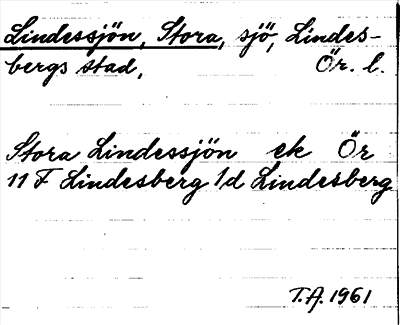 Lindessjön, Stora, sjö, Lindes-
bergs stad, Ör. l.
Stora Lindessjön ek Ör
11 F Lindesberg 1/d Lindesberg
T.A. 1961